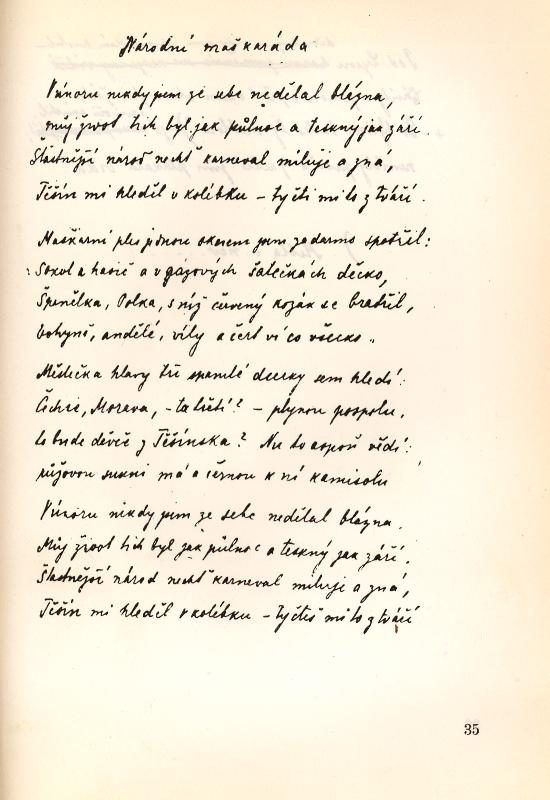 Národní maškaráda
V únoru nikdy jsem ze sebe nedělal blázna,
můj život tich byl jak půlnoc a teskný jak září.
Šťastnější národ nechť karneval miluje a zná,
Těšín mi hleděl v kolébku – tyčti mi to z tváří.
Maškarní ples jednou okesem jsem zadarmo spatřil:
Sokol a hasič a v gázových šatečkách děcko,
Španělka, Polka, s níž červený kozák se bratřil,
bohyně, andělé, víly a čert ví co všecko..
Městečka hlavy tři spanilé dcerky sem hledí:
Čechie, Morava, – ta třetí? – plynou pospolu,
to bude děvče z Těšínska? Nu to aspoň vědí:
růžovou sukni má a černou k ní kamisolu
V únoru nikdy jsem ze sebe nedělal blázna.
Můj život tich byl jak půlnoc a teskný jak září.
Šťastnější národ nechť karneval miluje a zná,
Těšín mi hleděl v kolébku – tyčteš mi to z tváří
35